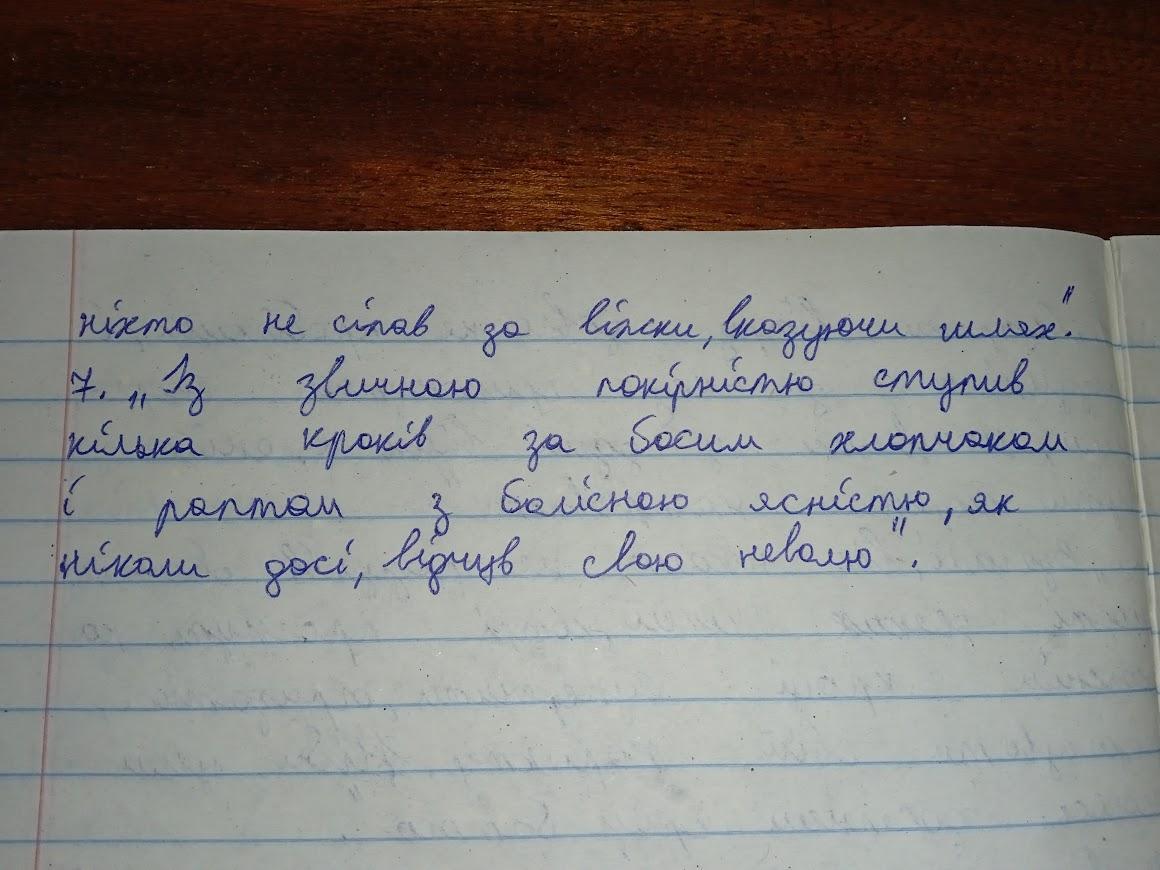 ніхто не сіпав за віжки, вказуючи шлях."
7. „Із звичною покірністю ступив
кілька кроків за босим хлопчаком
і раптом з болісною ясністю, як
ніколи досі, відчув свою неволю".